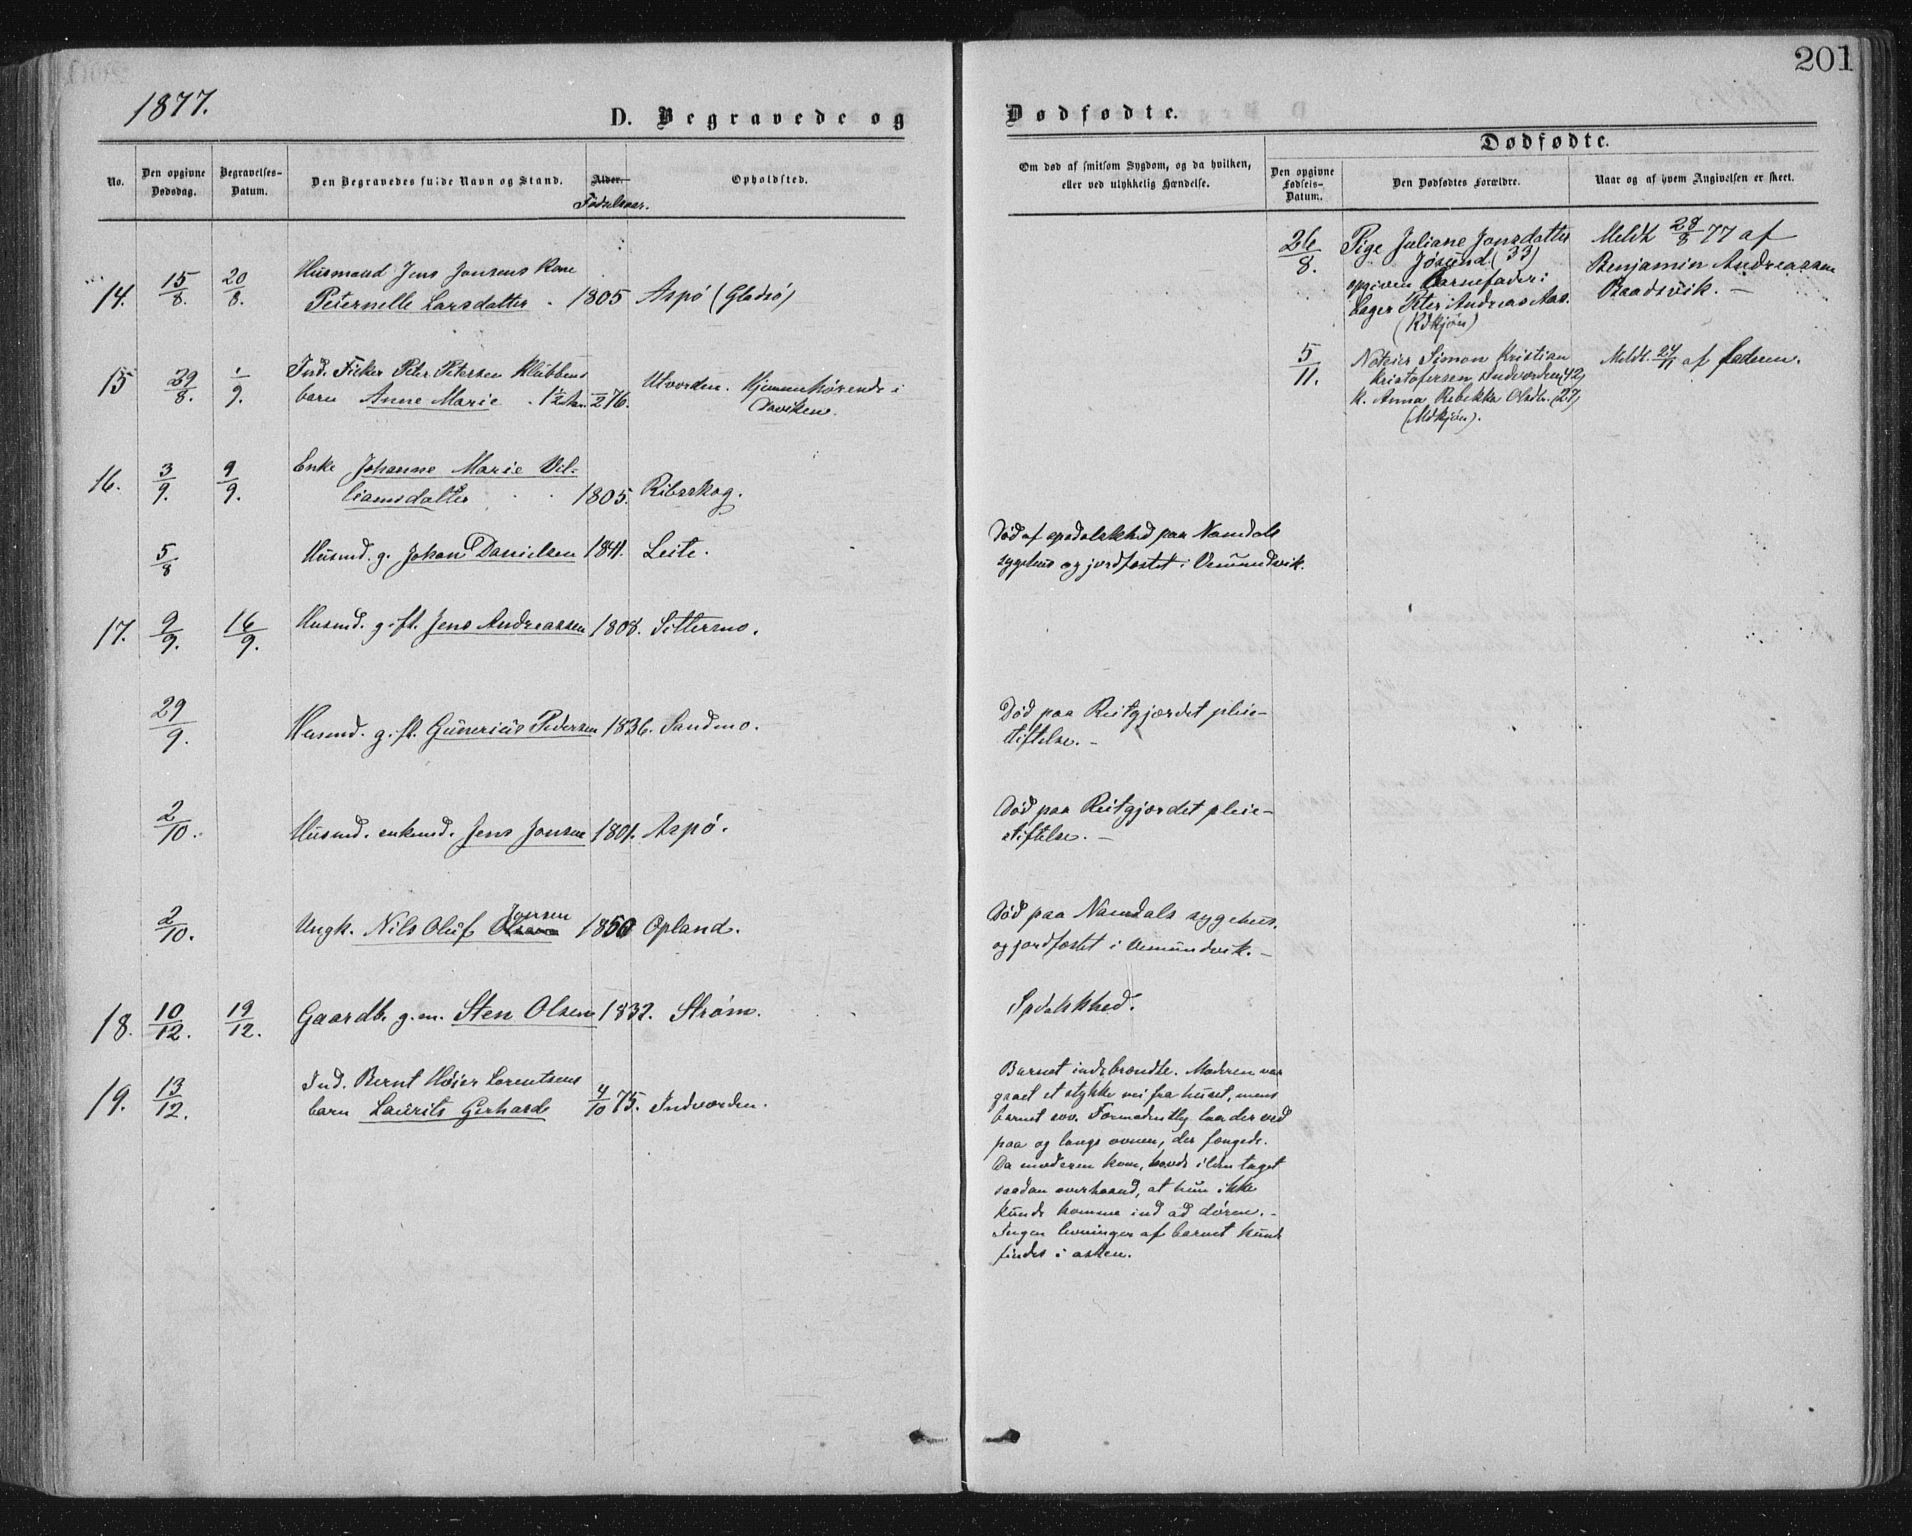 201
1877.
D. Begravede og
Dødfødte.
No.
Den opgivne Dødsdag.
Begravelses-Datum.
Den Begravedes fulde Navn og Stand.
Alder.
Fødselsaar.
Opholdsted.
Om død af smitsom Sygdom, og da hvilken,
eller ved ulykkelig Hændelse.
Dødfødte.
Den opgivne Fødsels-Datum.
Den Dødfødtes Forældre.
Naar og af hvem Angivelsen er skeet.
14. 15/8. 20/8. Husmand Jens Jonsens Kone
Peternelle Larsdatter 1805 Aspø (Gladsø)
15 29/8. 1/9. Ind. Fisker Peter Petersen Klubbens
barn Anne Marie 76. Utvorden. Hjemmehørende i
16. 3/9. 9/9. Enke Johanne Marie Vil-
liamsdatter 1805. Ribsskog.
5/8 Husmd. g. Johan Danielsen 1841. Leite.
Død af spedalskhed paa Namdals
sygehus og jordfæstet i Vemundvik.
17. 9/9. 16/9. Husmd. gift. Jens Andreassen 1808. Sittermo.
29/9. Husmd. gift. Gunerius Pedersen 1836. Sandmo.
Død paa Reitgjærdet pleie-
stiftelse. —
2/10. Husmd. enkemd. Jens Jonsen 1801. Aspø.
Død paa Reitgjærdet pleie-
stiftelse. —
2/10. Ungk. Nils Oluf Jonsen 1850 Opland.
Død paa Namdals sygehus,
og jordfæstet i Vemundvik. —
18. 10/12. 19/12. Gaardb. g.m. Sten Olsen 1832. Strøm.
Spdalskhed.
19. 13/12. Ind. Bernt Høier Lorentsens
barn Laurits Gerhard 4/10 75. Indvorden.
Barnet indebrændte. Moderen var
gaaet et stykke vei fra huset, mens
barnet sov. Formodentlig laa der ved
paa og langs ovnen, der fængede.
Da moderen kom, havde ilden taget
saadan overhaand, at hun ikke
kunde komme ind ad døren. -
Ingen levninger af barnet kunde
findes i asken.
26/8. Pige Juliane Jonsdatter
Jøsund (33)
opgiven Barnefader:
Lager Peter Andreas Aas.
(Kdkjøn)
Meldt 28/8 77 af
Benjamin Andreassen
Baadsvik. —
5/11. Simon Kristian
Kristofersen Indvorden (42)
K. Anna Rebekka Olsdtr. (27)
(Mdkjøn).
Meldt. 24/11 af faderen.